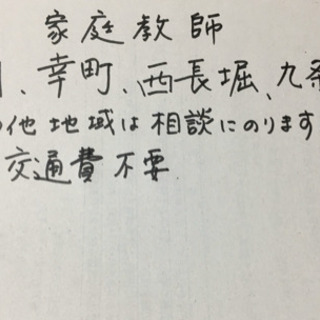 家庭教師
、幸町、西長堀、九条
の他地域は相談にのります
交通費不要